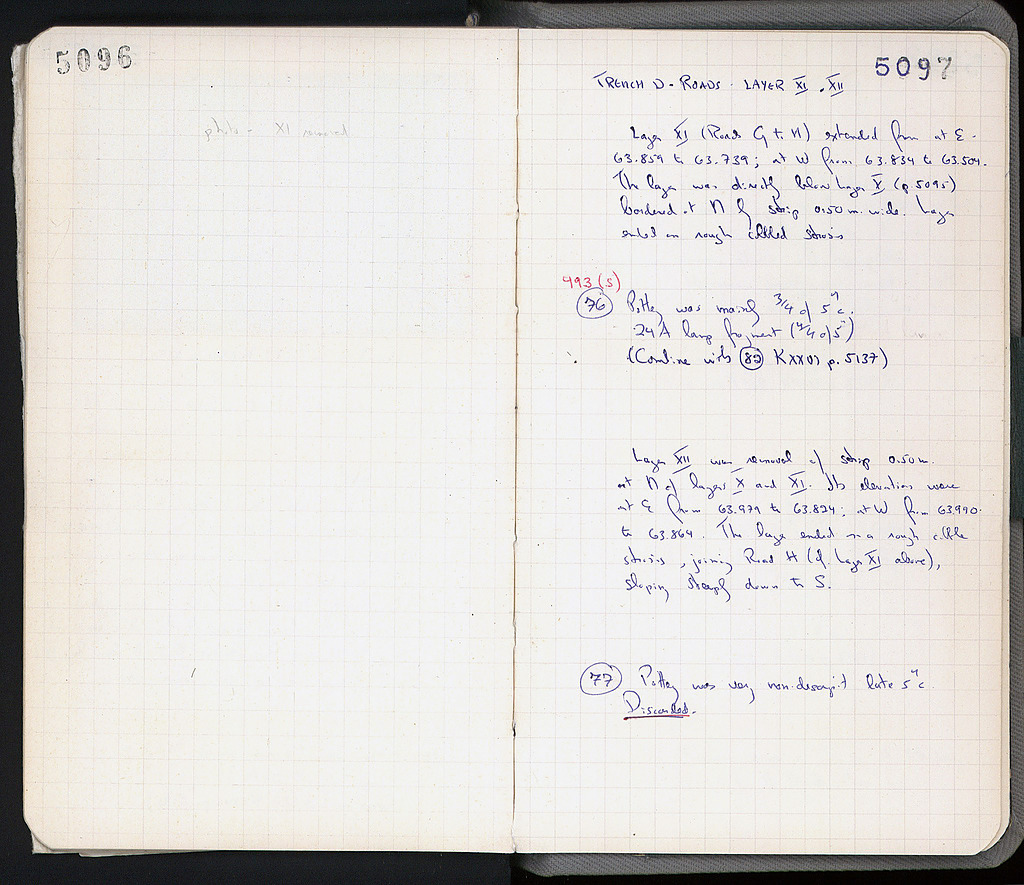 5096
photo - XI removed
5097
TRENCH D - ROADS - LAYER XI, XII
Layer XI (Roads G + H) extended from at E -
63.859 to 63.739; at W from 63.834 to 63.504.
The layer was directly below Layer X (p. 5095)
bordered at N by strip 0.50 m. wide. Layer
ended on rough cobbled strosis
493 (S)
76 Pottery was mainly 3/4 of 5th c.
24A lamp fragment (4/4 of 5th)
(Combine with 82 K XXVI p. 5137)
Layer XII was removal of strip 0.50 m.
at N of layers X and XI. Its elevations were
at E from 63.979 to 63.824; at W from 63.990
to 63.864. The layer ended on a rough cobble
strosis, joining Road H (cf. Layer XI above),
sloping steeply down to S.
77 Pottery was very non-descript late 5th c.
Discarded.